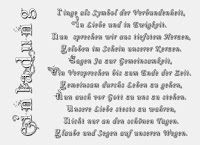 Einladung
Ringe als Symbol der Verbundenheit,
In Liebe und in Ewigkeit.
Nun sprechen wir aus tiefstem Herzen,
Geloben im Schein unserer Kerzen.
Sagen Ja zur Gemeinsamkeit,
Ein Versprechen bis zum Ende der Zeit.
Gemeinsam durchs Leben zu gehen,
Nun auch vor Gott zu uns zu stehen.
Unsere Liebe stets zu wahren,
Nicht nur an den schönen Tagen.
Glaube und Segen auf unseren Wegen.